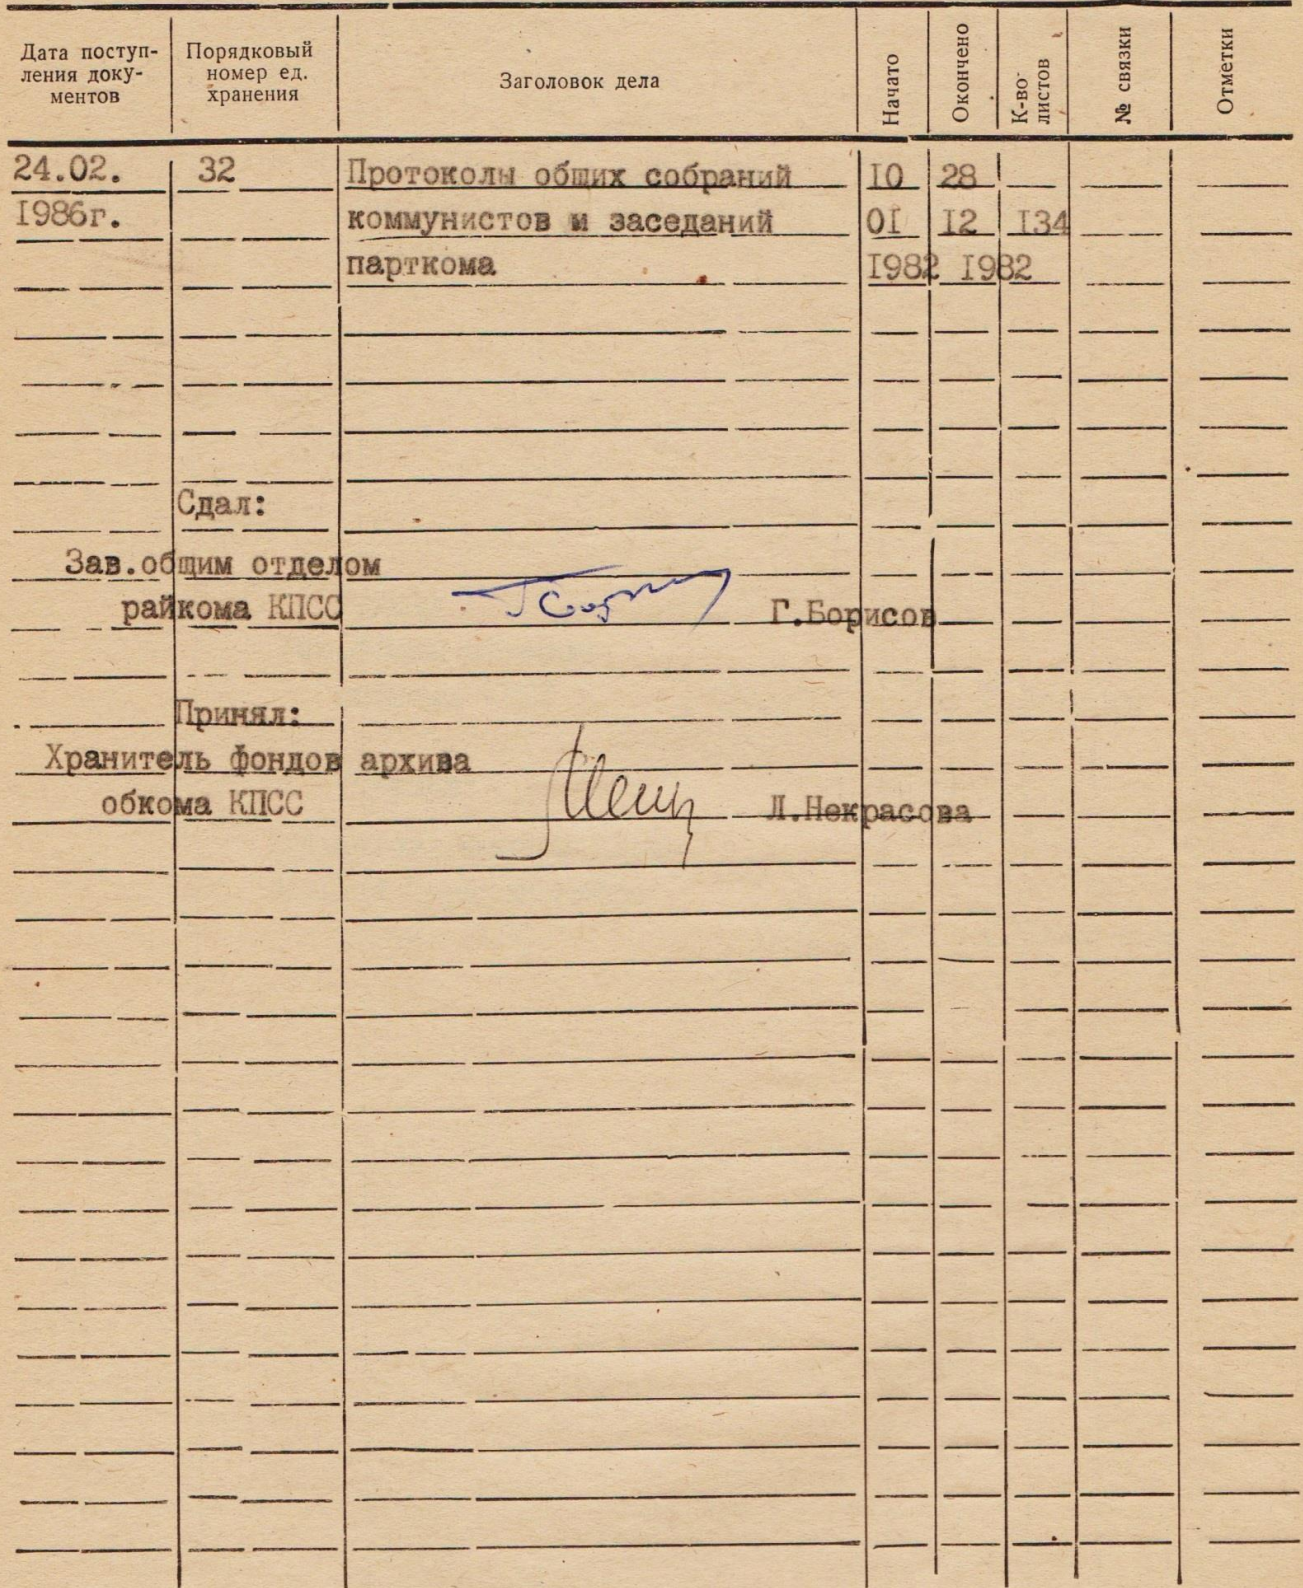 Дата поступ-
ления доку-
ментов
Порядковый
номер ед.
хранения
Заголовок дела
Начато
Окончено
К-во
листов
№ связки
Отметки
24.02. 32 Протоколы общих собраний 10 28
1986г. коммунистов и заседаний 01 12 134
парткома 1982 1982
Сдал:
Зав.общим отделом
райкома КПСС Г.Борисов
Принял:
Хранитель фондов архива
обкома КПСС Л.Некрасова